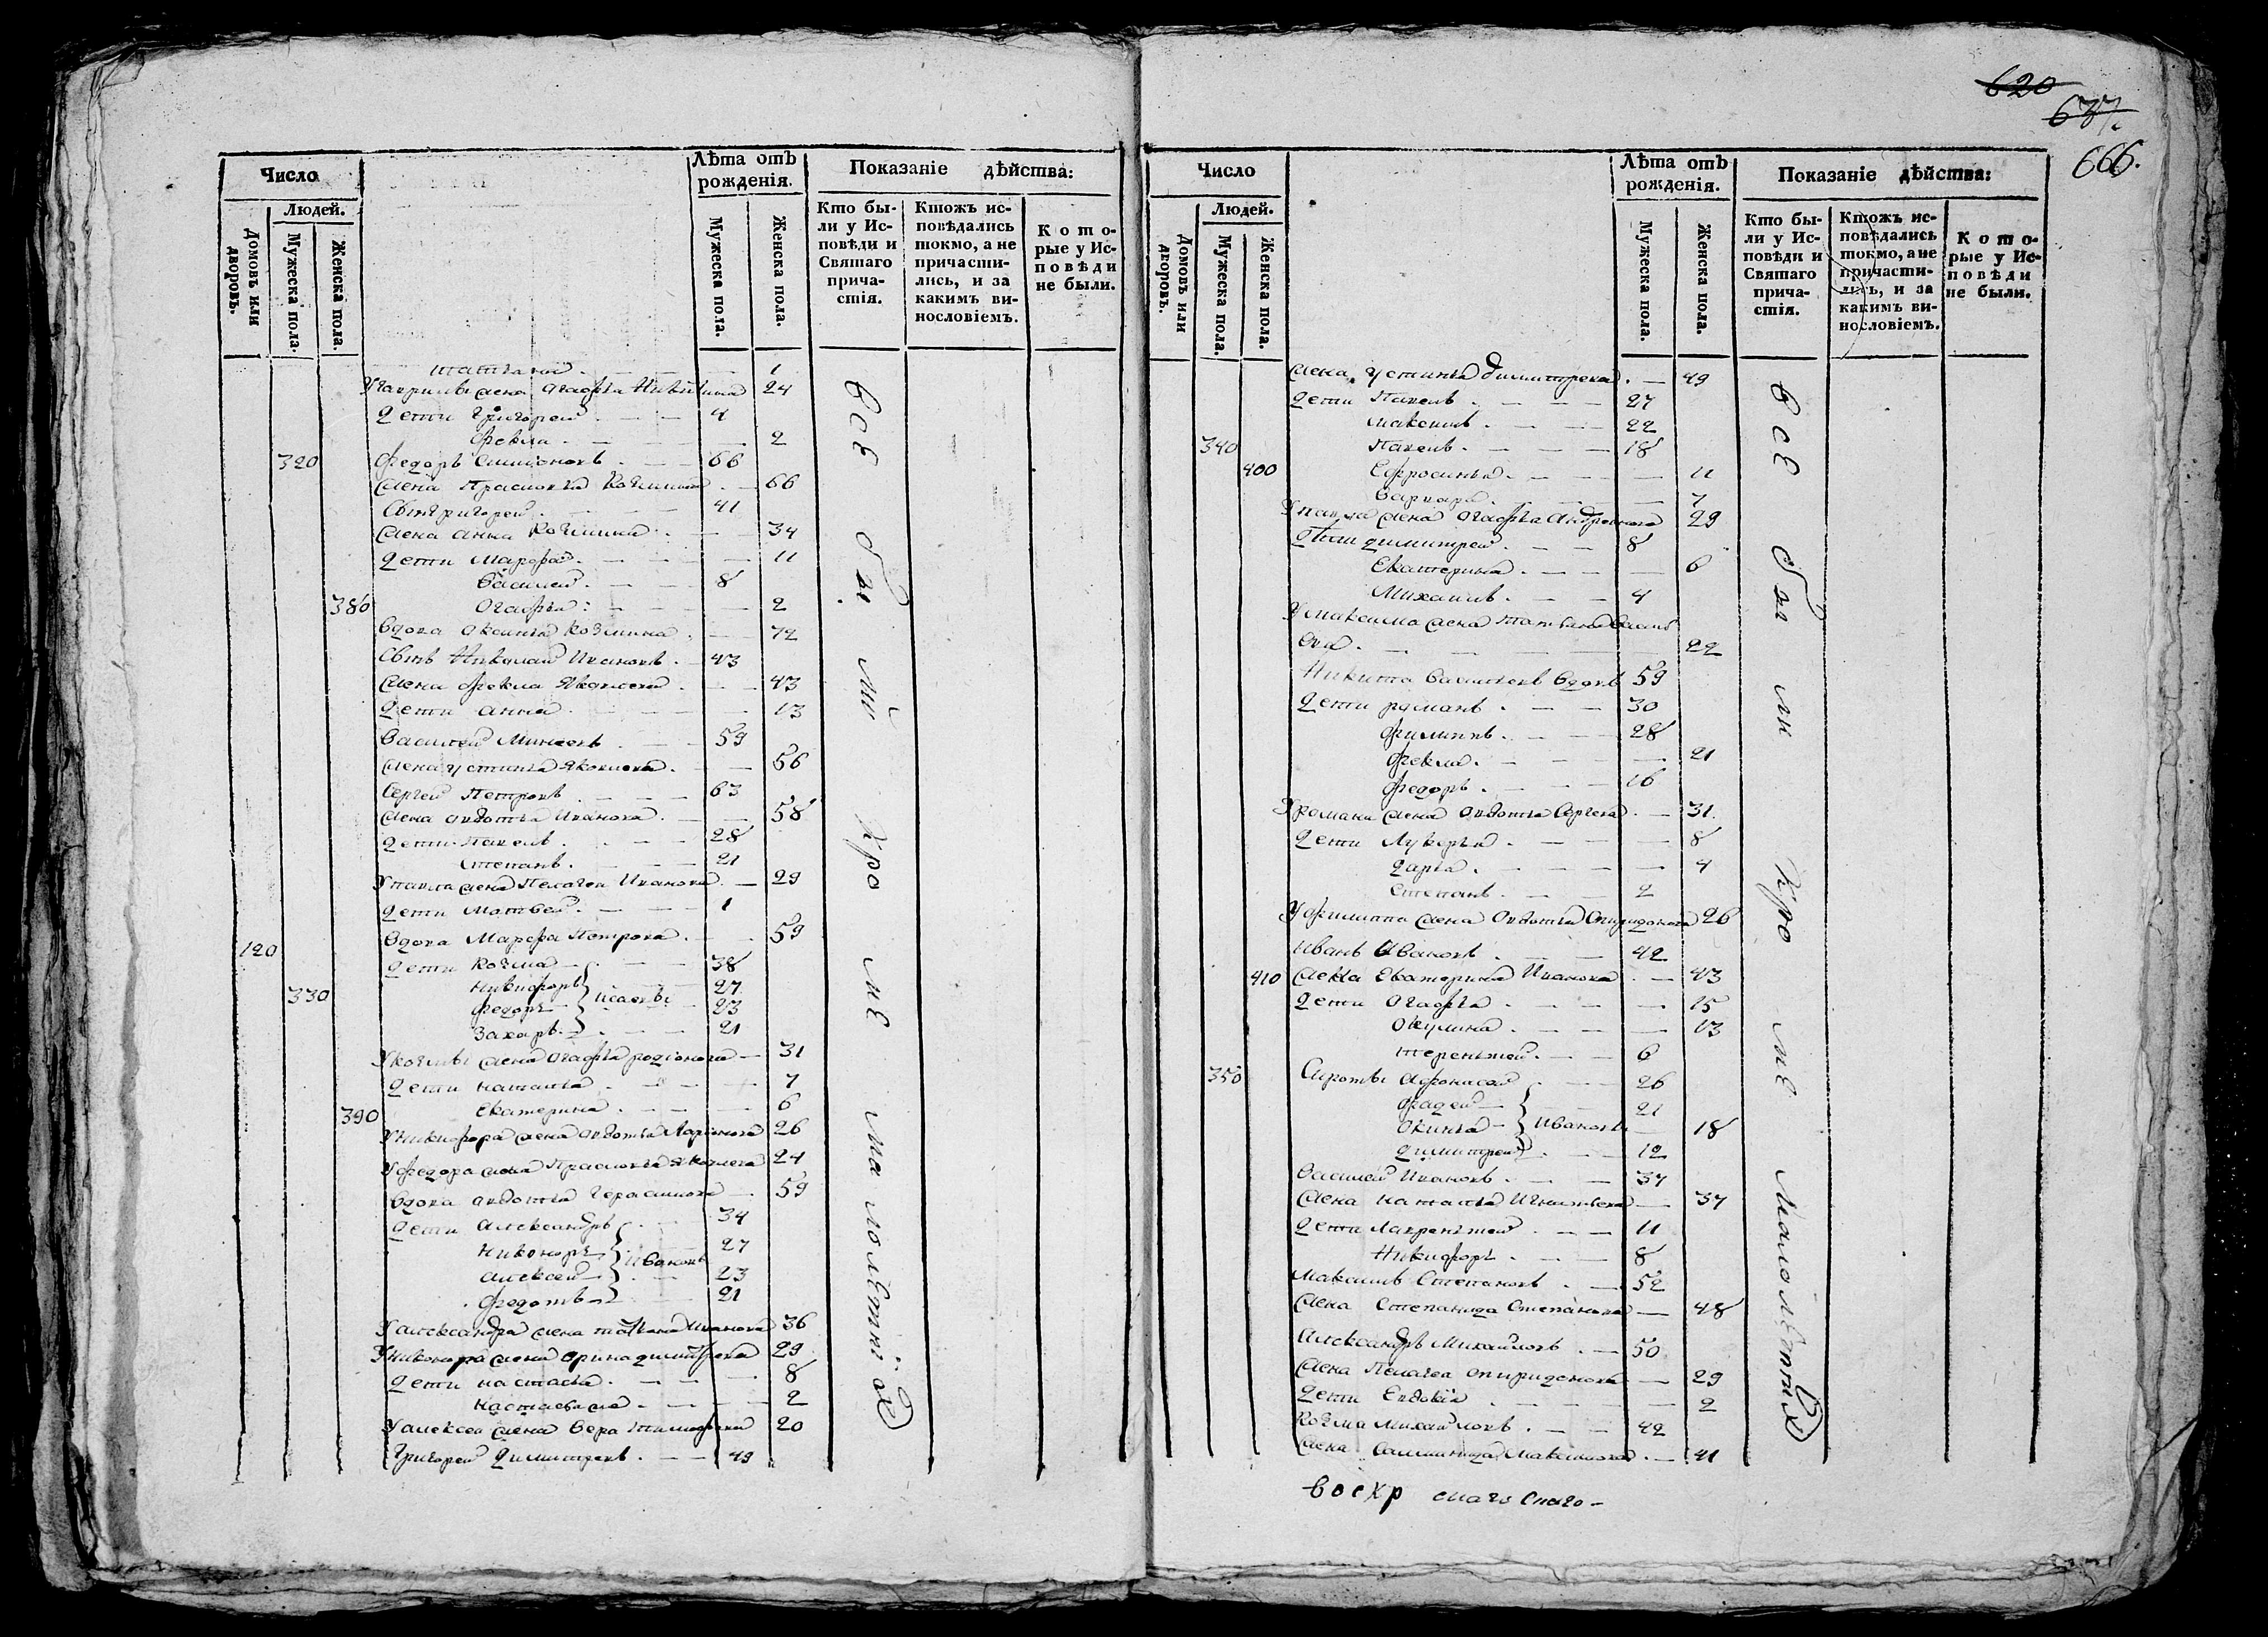 Число
Людей.
Домовъ или дворовъ.
Мужеска пола.
Женска пола.
Лѣта отъ рожденія.
Мужеска пола.
Женска пола.
Показаніе дѣйства:
Кто бы-
ли у Ис-
повѣди и
Святаго
прича-
стія.
Ктожъ ис-
повѣдались
токмо, а не
причасти-
лись, и за
какимъ ви-
нословіемъ.
Кото-
рые у Ис-
повѣди
не были.
татьяна 1
У гаврилы жена агафья Никитина 24
Дети Григорей 4
Фекла 2
320 Федоръ Симионовъ 66
жена Прасковья Козмина 66
Сынъ григорей 41
жена анна Козмина 34
Дети Марфа 11
Василей 8
380 Огафья 2
Вдова Оксинья Козмина 72
Сынъ Николай Ивановъ 43
жена Фекла Яковлева 43
Дети анна 13
Василей Минеевъ 59
жена устинья Яковлева 56
Сергей Петровъ 63
жена авдотья Иванова 58
Дети Павелъ 28
Степанъ 21
У павла жена Пелагея Иванова 29
Дети Матвей 1
120 Вдова Марфа Петрова 59
Дети Козма 38
Никифоръ 27
330 Федоръ Исаевы 23
Захаръ 21
У козмы жена агафья родионова 31
Дети наталья 7
Екатерина 6
390 У никифора жена авдотья Ларионова 26
У федора жена Прасковья Яковлева 24
Вдова авдотья Герасимова 59
Дети Александръ 34
Никоноръ 27
Ивановы
алексей 23
Федотъ 21
У александра жена татьяна Иванова 36
У никонора жена орина димитрева 29
Дети настасья 8
Настасья же 2
У алексея жена Вера Тимофеева 20
Григорей Димитревъ 49
все были кроме малолетних
620
637
666.
Число
Людей.
Домовъ или дворовъ.
Мужеска пола.
Женска пола.
Лѣта отъ рожденія.
Мужеска пола.
Женска пола.
Показаніе дѣйства:
Кто бы-
ли у Ис-
повѣди и
Святаго
прича-
стія.
Ктожъ ис-
повѣдались
токмо, а не
причасти-
лись, и за
какимъ ви-
нословіемъ.
Кото-
рые у Ис-
повѣди
не были.
жена устинья димитрева 49
Дети Павелъ 27
Максимъ 22
340 Павелъ 18
400 Ефросинья 11
Варвара 7
У павла жена Огафья Андреянова 29
Дети димитрей 8
Екатерина 6
Михаилъ 4
У максима жена татьяна Василь
ева 22
Никита Васильевъ Вдовъ 59
Дети романъ 30
Филипъ 28
Фекла 21
Федоръ 16
У романа жена авдотья Сергева 31
Дети Лукерья 8
Дарья 4
Степанъ 2
У филипа жена Овдотья Спиридонова 26
Иванъ Ивановъ 42
410 жена Екатерина Иванова 43
Дети Огафья 15
Окулина 13
терентей 6
350 Сироты афонасей 26
Фадей 21
Окинья Ивановы 18
Димитрей 12
Василей Ивановъ 37
жена наталья Игнатьева 37
Дети Лаврентей 11
Никифоръ 8
Максимъ Степановъ 52
жена Степанида Степанова 48
Александръ Михайловъ 50
жена Пелагея Спиридонова 29
Дети Евдокия 2
Козма Михайловъ 42
жена Соломонида Максимова 41
все были кроме малолетних